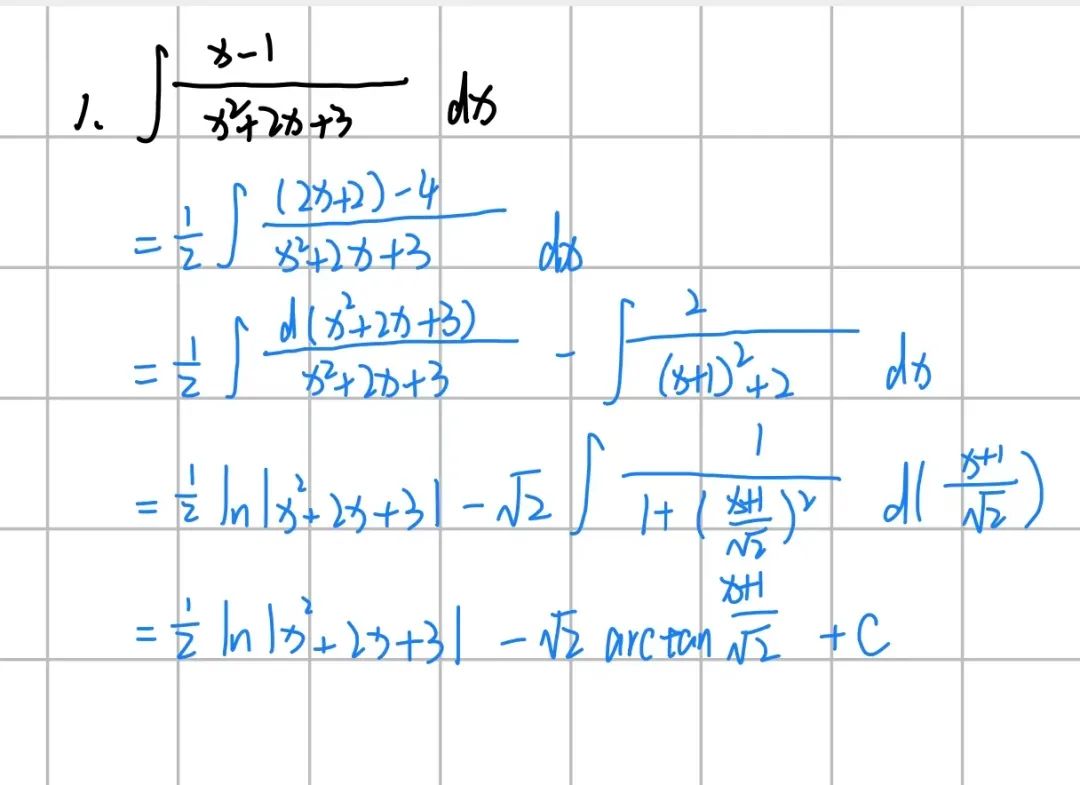 1. ∫ (x-1)/(x²+2x+3) dx
= 1/2 ∫ ((2x+2)-4)/(x²+2x+3) dx
= 1/2 ∫ d(x²+2x+3)/(x²+2x+3) - ∫ 2/((x+1)²+2) dx
= 1/2 ln|x²+2x+3| - √2 ∫ 1/(1+((x+1)/√2)²) d((x+1)/√2)
= 1/2 ln|x²+2x+3| - √2 arctan (x+1)/√2 + C